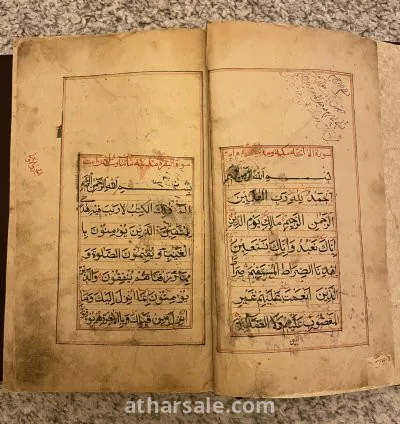 سورة الفاتحة مكية
بِسْمِ اللهِ الرَّحْمٰنِ الرَّحِيْمِ
اَلْحَمْدُ لِلّٰهِ رَبِّ الْعٰلَمِيْنَ
الرَّحْمٰنِ الرَّحِيْمِ مَالِكِ يَوْمِ الدِّيْنِ
اِيَّاكَ نَعْبُدُ وَاِيَّاكَ نَسْتَعِيْنُ
اِهْدِنَا الصِّرَاطَ الْمُسْتَقِيْمَ صِرَاطَ
الَّذِيْنَ اَنْعَمْتَ عَلَيْهِمْ غَيْرِ
الْمَغْضُوْبِ عَلَيْهِمْ وَلَا الضَّالِّيْنَ
بِسْمِ اللهِ الرَّحْمٰنِ الرَّحِيْمِ
الٓمّٓ ذٰلِكَ الْكِتٰبُ لَا رَيْبَ فِيْهِ هُدًى
لِلْمُتَّقِيْنَ الَّذِيْنَ يُؤْمِنُوْنَ بِا
لْغَيْبِ وَيُقِيْمُوْنَ الصَّلٰوةَ وَ
مِمَّا رَزَقْنَاهُمْ يُنْفِقُوْنَ وَالَّذِيْنَ
يُؤْمِنُوْنَ بِمَا اُنْزِلَ اِلَيْكَ وَمَا
اُنْزِلَ مِنْ قَبْلِكَ وَبِالْاٰخِرَةِ هُمْ يُوْ
atharsale.com